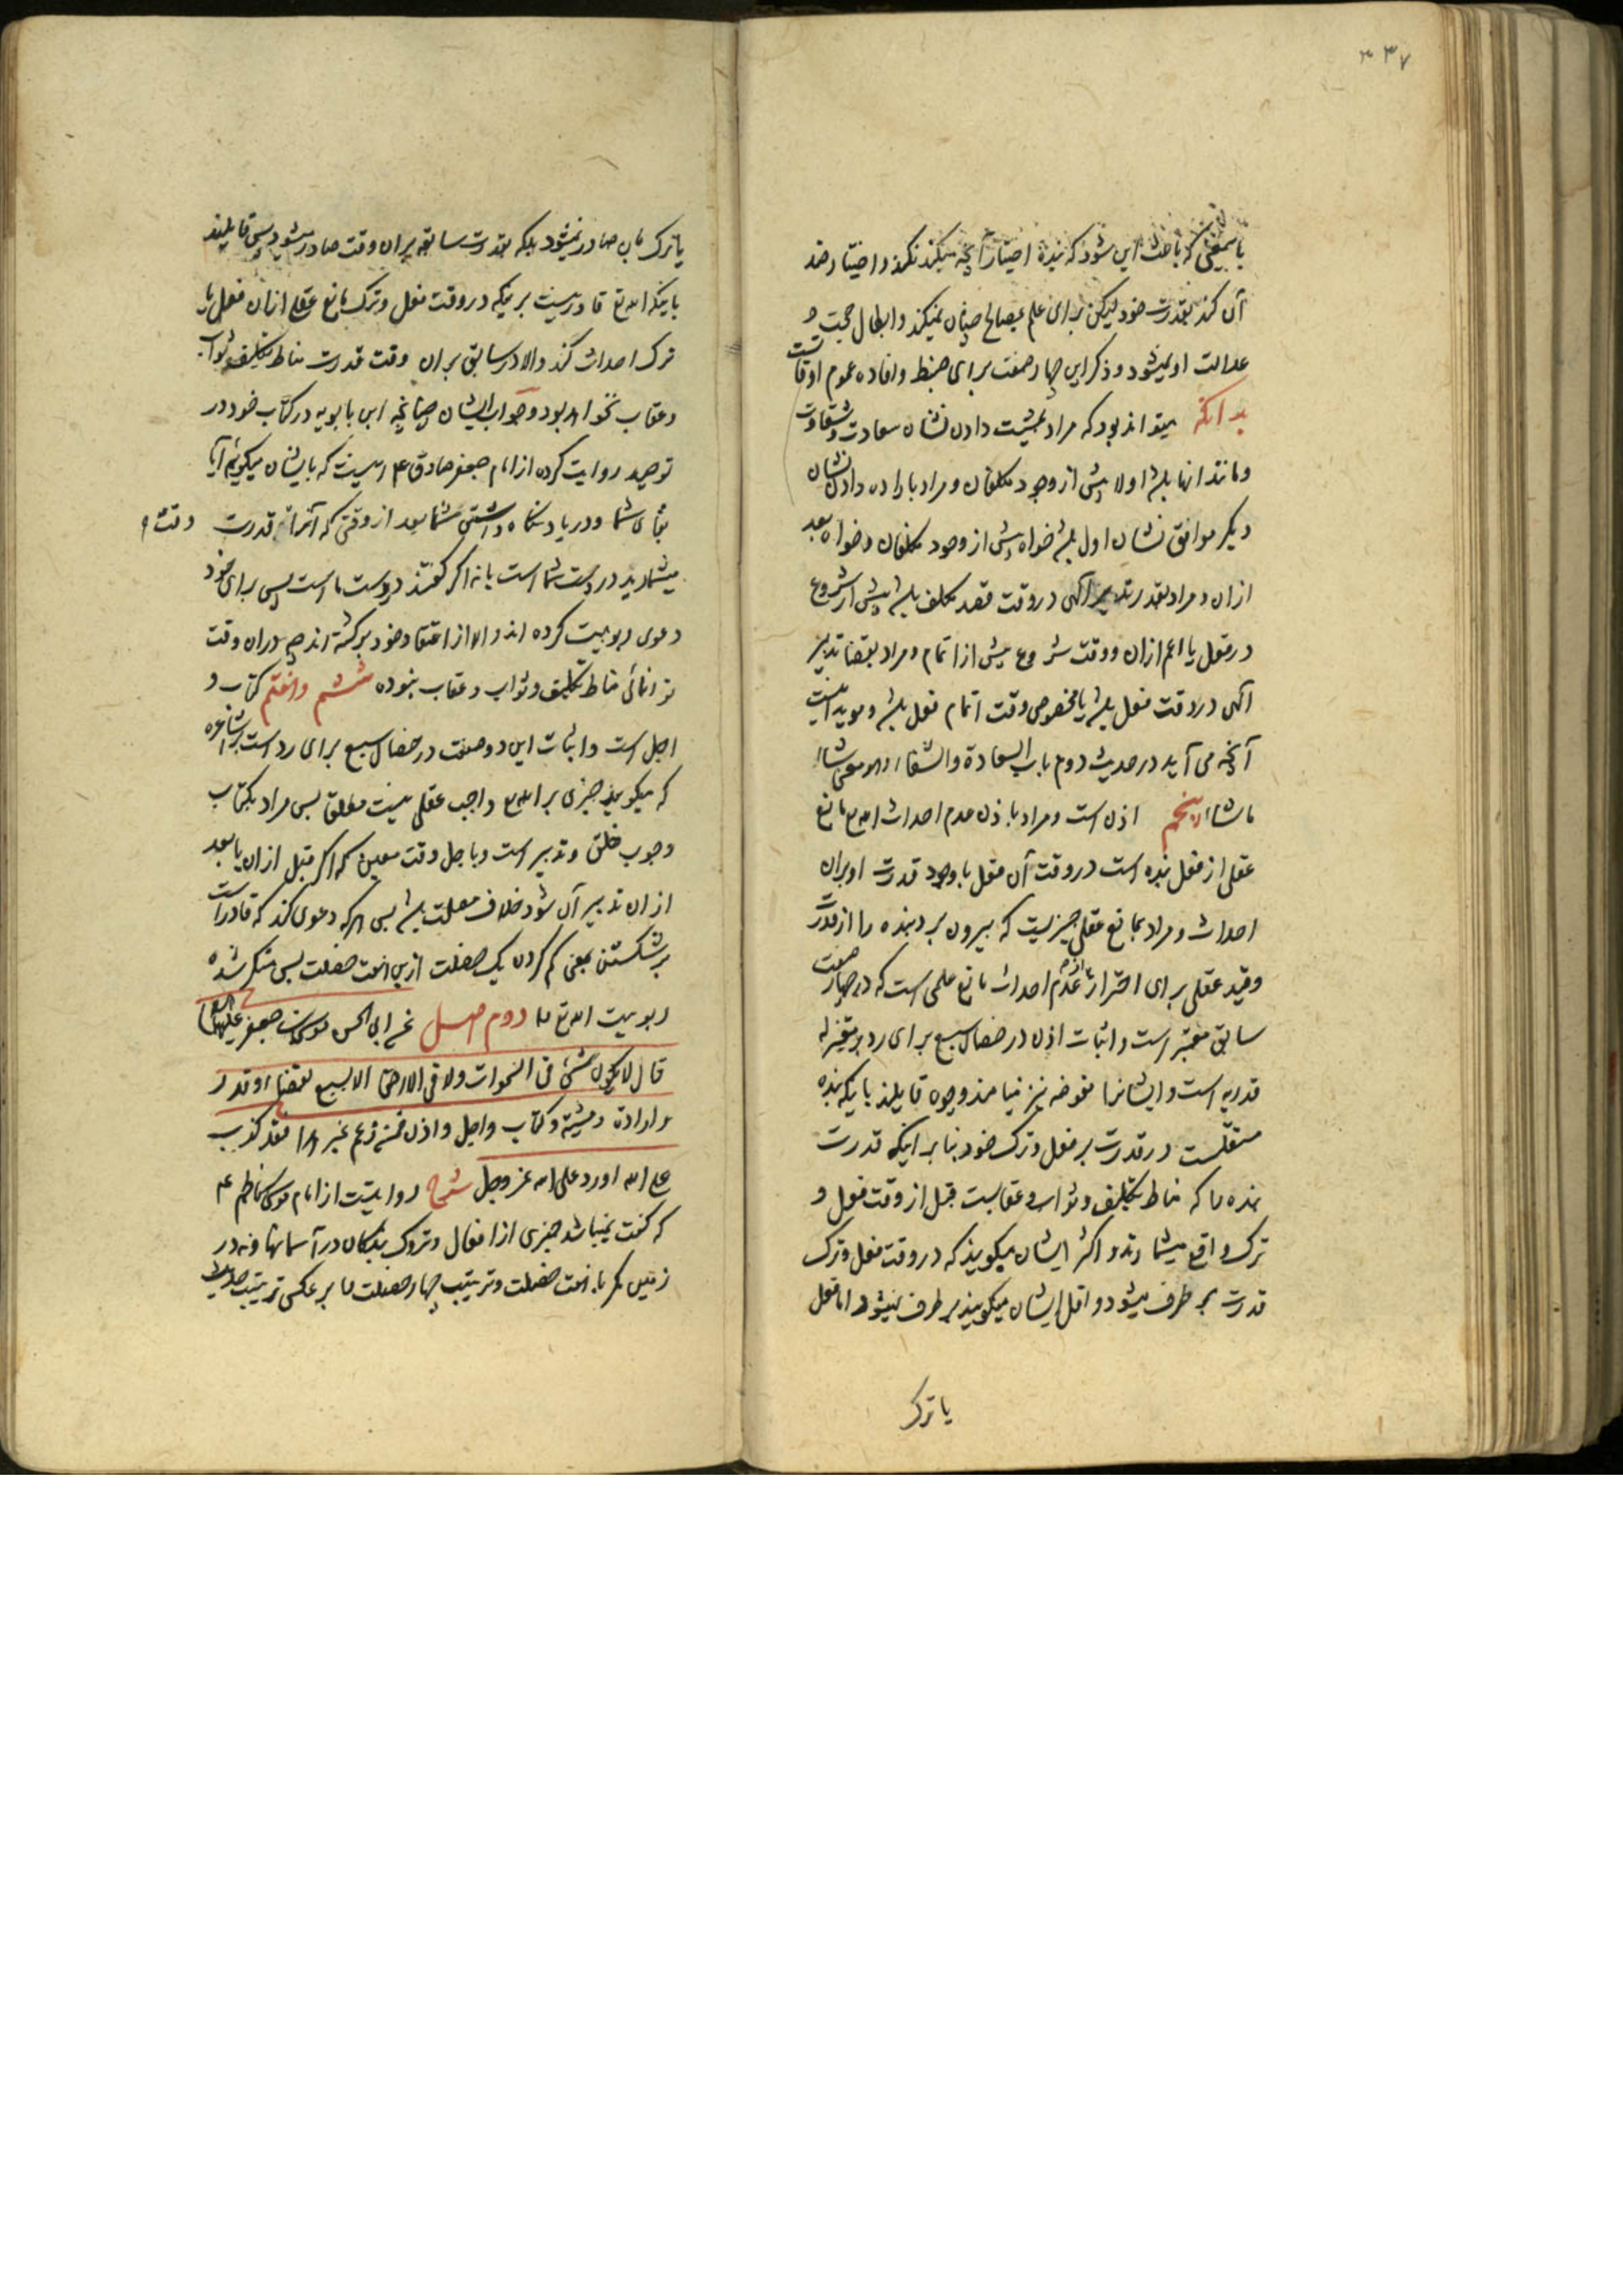 ۳۳۷
باین معنی که باعث این شود که بنده اختیار آنچه میکند نکند و اختیار ضد
آن کند بقدرت خود لیکن برای علم بمصالح چنان نمیکند و ابطال حجت و
عدالت او نمیشود و ذکر این چهار صفت برای ضبط و افاده عموم اوقاتست
بدانکه میتواند بود که مراد بمشیت دادن نشان سعادت و شقاوت
و مانند آنها باشد اولا پیش از وجود مکلفان و مراد باراده دادن نشان
دیگر موافق نشان اول باشد خواه پیش از وجود مکلفان و خواه بعد
ازان و مراد بقدر تدبیر آلهی در وقت قصد مکلف باشد پیش از شروع
در فعل یا اعم ازان و وقت شروع پیش از اتمام و مراد بقضا تدبیر
آلهی در وقت فعل باشد یا مخصوص وقت اتمام فعل باشد و موید اینست
آنچه می آید در حدیث دوم باب السعادة والشقاء و هو معنی شاء
ما شاء پنجم اذن است و مراد باذن عدم احداث الله تع مانع
عقلی از فعل بنده است در وقت آن فعل با وجود قدرت او بران
احداث و مراد بمانع عقلی چیزیست که بیرون برد بنده را از قدرت
و قید عقلی برای احتراز از عدم احداث مانع علمی است که در چهار صفت
سابق معتبر است و اثبات اذن در خصال سبع برای رد بر معتزله
قدریه است و ایشانرا مفوضه نیز نیامند و چه قایلند باینکه بنده
مستقلست در قدرت بر فعل و ترک خود بنا بر اینکه قدرت
بنده را که مناط تکلیف و ثواب و عقابست قبل از وقت فعل و
ترک واقع میشمارند و اکثر ایشان میکویند که در وقت فعل و ترک
قدرت بر طرف میشود و اقل ایشان میکویند بر طرف نمیشود اما فعل
یا ترک
یا ترک بآن صادر نمیشود بلکه بقدرت سابقه بران وقت صادر میشود پس قایلند
باینکه الله تع قادر نیست بر اینکه در وقت فعل و ترک مانع عقلی ازان فعل یا
ترک احداث کند و الا در سابق بران وقت قدرت مناط تکلیف و ثواب
و عقاب نخواهد بود و جواب ایشان چنانچه ابن بابویه در کتاب خود در
توحید روایت کرده از امام جعفر صادق ع اینست که بایشان میکوئیم آیا
بقای شما و در یاد نکاه داشتن شما بعد از وقتی که آنرا وقت قدرت
میشمارید در دست شما است یا نه اکر کفتند در دست ما است پس برای خود
دعوی ربوبیت کرده اند و الا از اعتقاد خود برکشته اند چه دران وقت
توانائی مناط تکلیف و ثواب و عقاب نبوده ششم و هفتم کتاب و
اجل است و اثبات این دو صفت در خصال سبع برای رد است بر اشاعره
که میکویند چیزی بر الله تع واجب عقلی نیست مطلقا پس مراد بکتاب
وجوب خلق و تدبیر است و باجل وقت معین که اکر قبل ازان یا بعد
ازان تدبیر آن شود خلاف مصلحت باشد پس هر که دعوی کند که قادر است
بر شکستن بمعنی کم کردن یک خصلت ازین هفت خصلت پس منکر شده
ربوبیت الله تع را دوم اصل عن ابی الحسن موسی بن جعفر علیهما السلام
قال لا یکون شئ فی السموات و لا فی الارض الا بسبع بقضاء و قدر
و ارادة و مشیة و کتاب و اجل و اذن فمن زعم غیر هذا فقد کذب
علی الله او رد علی الله عز و جل شرح روایتست از امام موسی کاظم ع
که کفت نمیباشد چیزی از افعال و تروک بندکان در آسمانها و نه در
زمین مکر با هفت خصلت و ترتیب چهار خصلت را بر عکس ترتیب حدیث